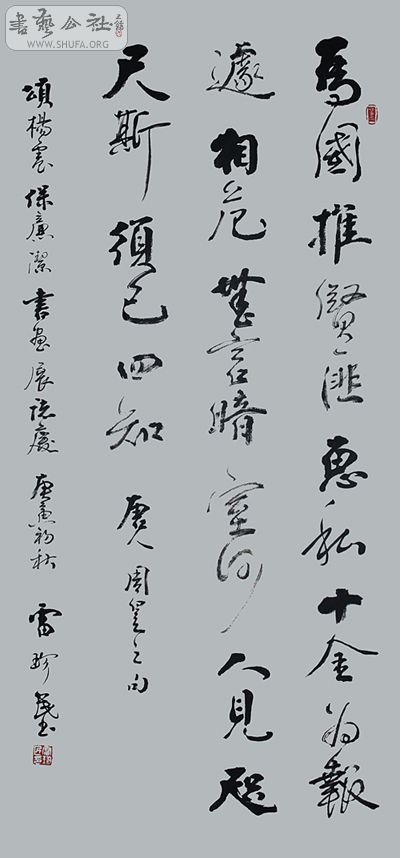 書藝公社
WWW.SHUFA.ORG
為國推賢匪惠私十金為報
遽相危無言暗室何人見咫
尺斯須已四知 唐人周曇之句
頌楊震保廉潔書畫展誌慶 庚寅初秋 雷珍民書